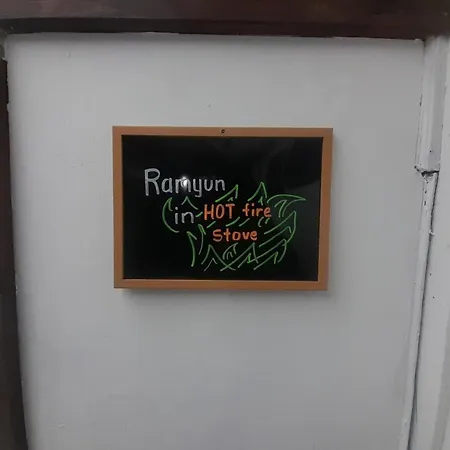 Ramyun
in HOT fire
Stove